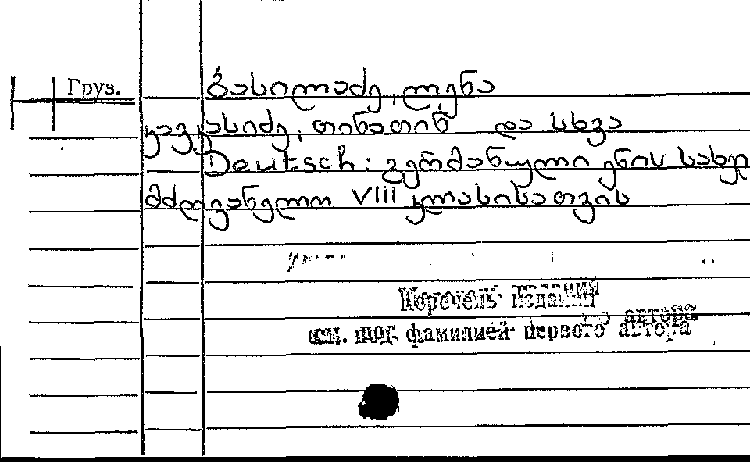 Груз.
ბასილაძე, ლენა
კავკასიძე, თინათინ და სხვა
Deutsch: გერმანული ენის სახელ
მძღვანელო VIII კლასისათვის
Перечень изданий
см. под фамилией первого автора